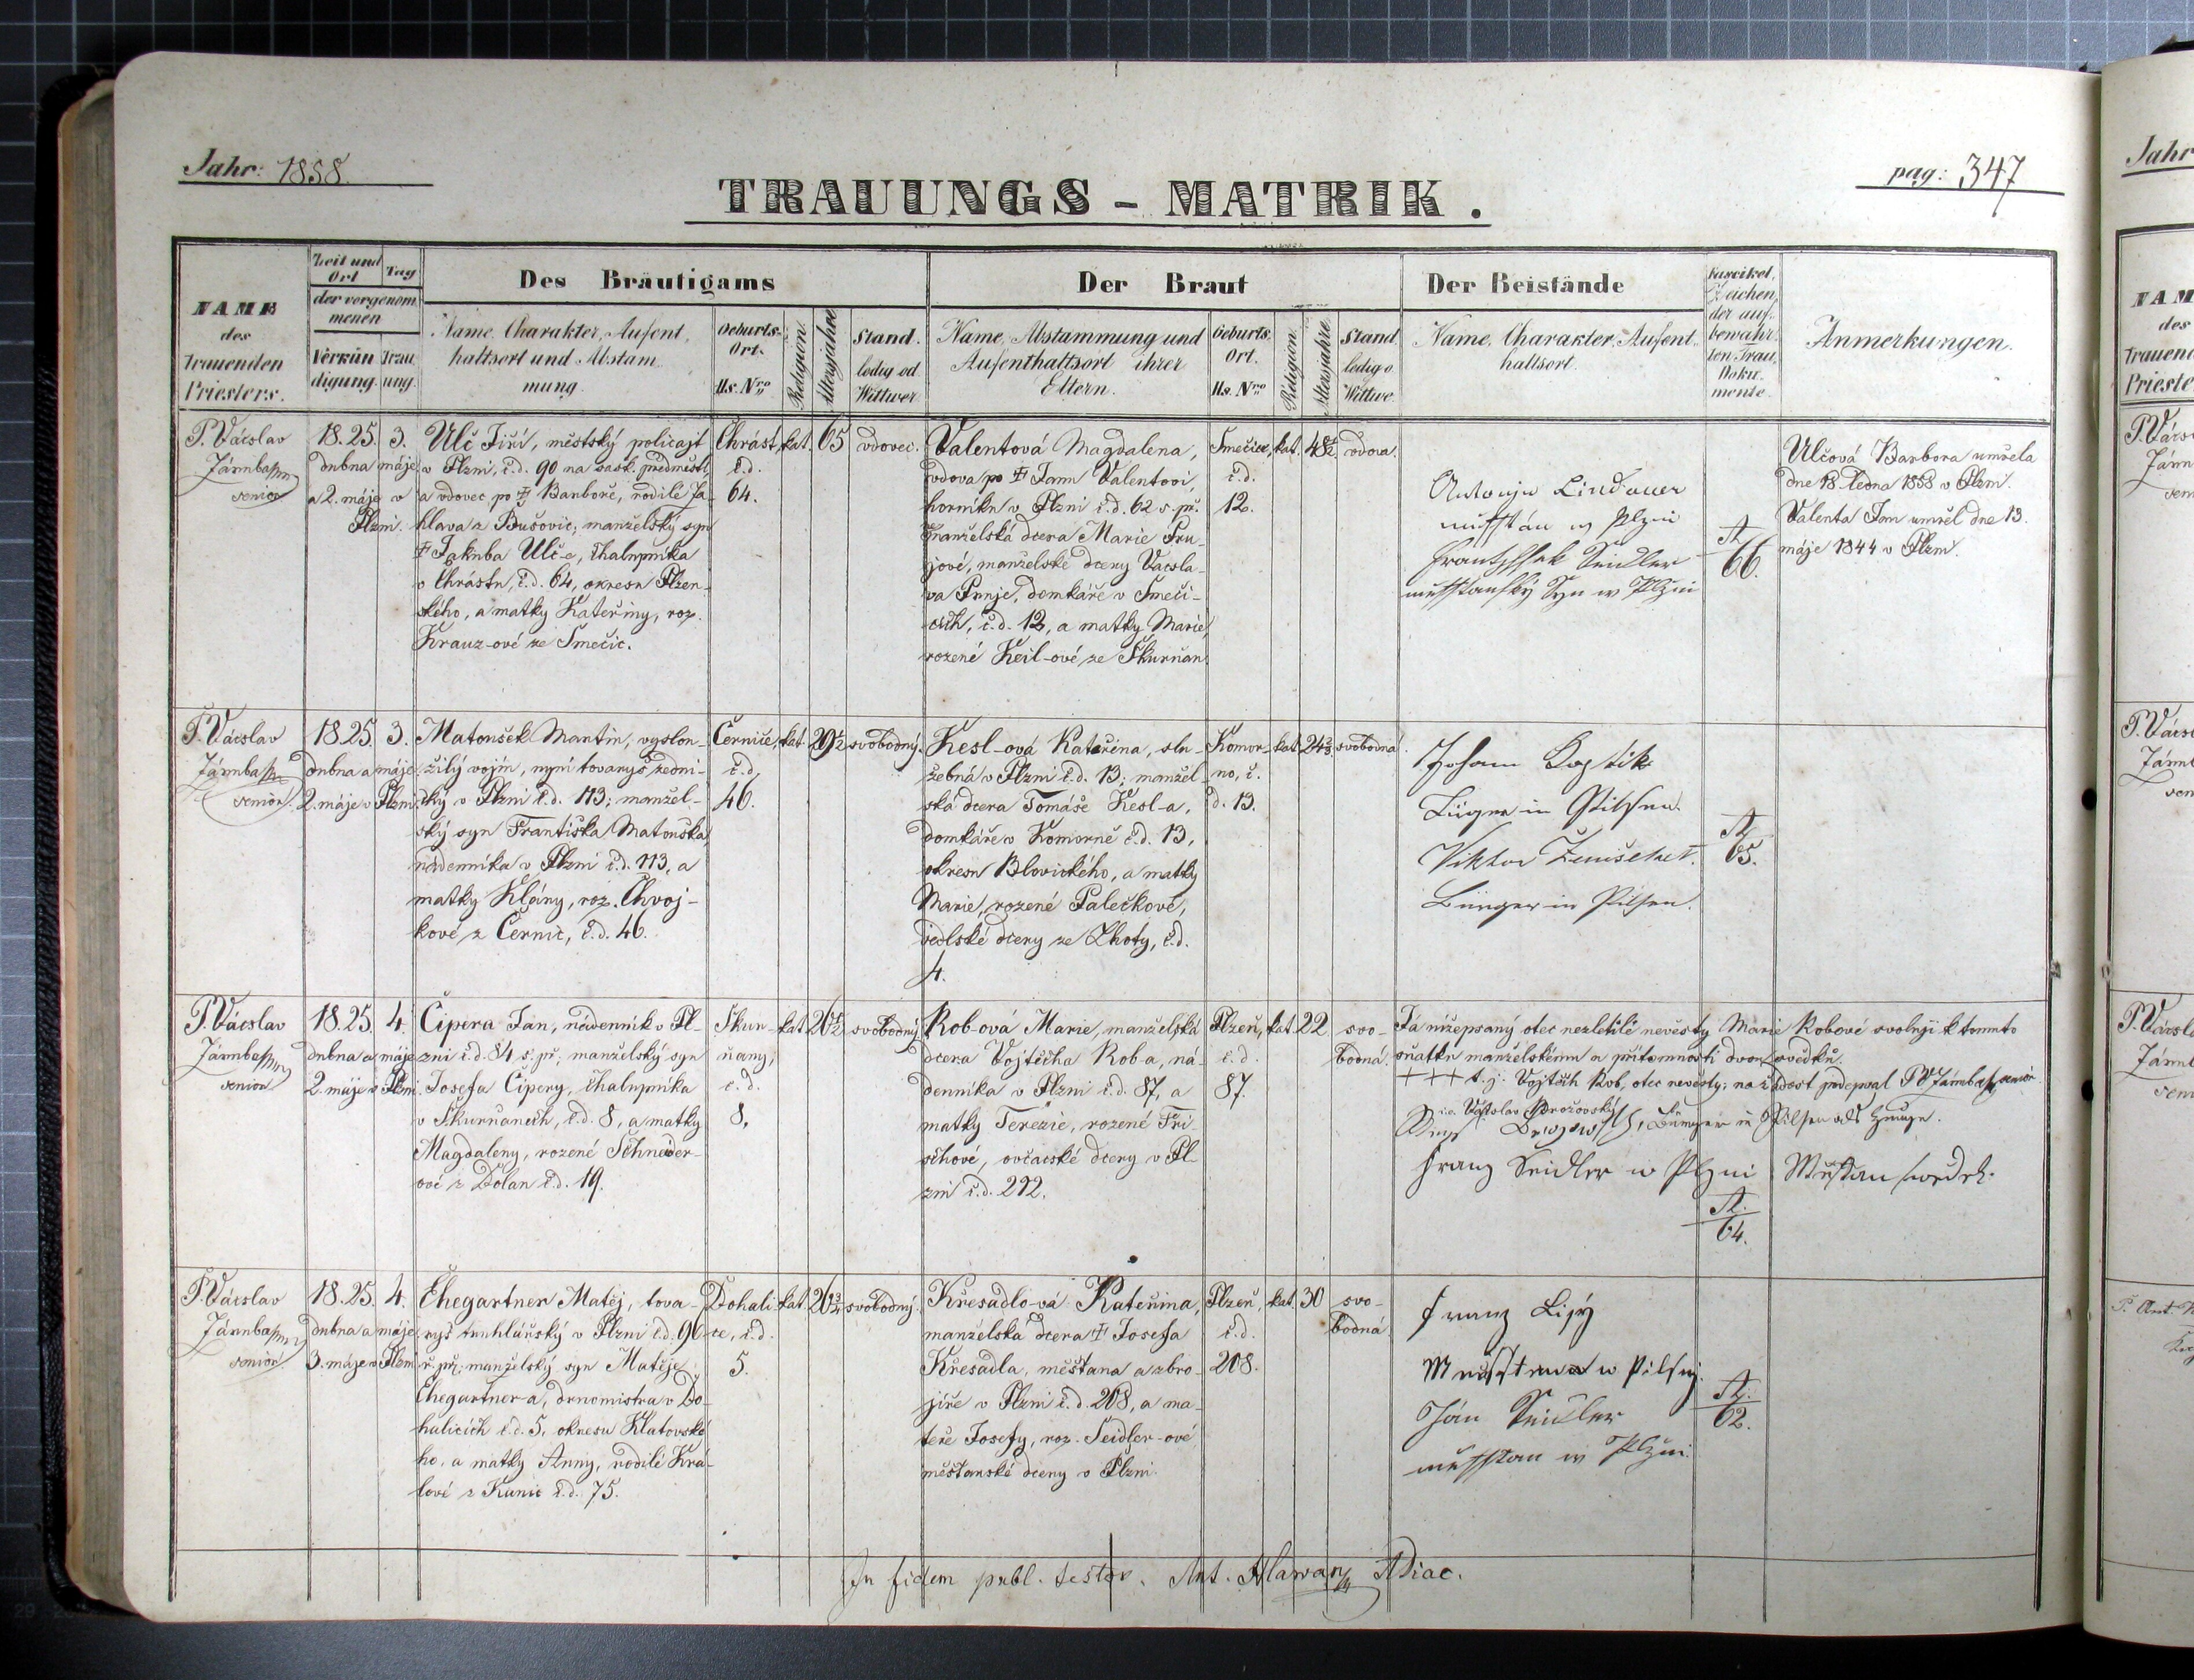 Jahr: 1858.
pag: 347
TRAUUNGS - MATRIK.
NAME
des
Trauenden
Priesters.
Zeit und
Ort
Tag
der vorgenom
menen
Verkün
digung.
Trau
ung.
Des Bräutigams
Name, Charakter, Aufent,
haltsort und Abstam
mung.
Geburts-
Ort.
Hs. Nro
Religion
Altersjahre
Stand.
ledig od.
Wittwer
Der Braut
Name, Abstammung und
Aufenthaltsort ihrer
Eltern.
Geburts
Ort.
Hs. Nro
Religion
Altersjahre
Stand
ledig o.
Wittwe.
Der Beistände
Name, Charakter, Aufent-
haltsort.
Fascikel,
Zeichen,
der auf-
bewahr-
ten Trau,
Doku-
mente.
Anmerkungen.
P. Vácslav
Jármba
senior
18. 25.
dubna
a 2. máje v
Plzni.
3.
máje
Ulč Jiří, městský policajt
v Plzni, č.d. 90 na sask. předměstí
a vdovec po † Barboře, rodilé Ja-
hlava z Bušovic; manželský syn
† Jakuba Ulč-e, chalupníka
v Chrástu, č.d. 64, okresu Plzen-
ského, a matky Kateřiny, roz.
Krauz-ové ze Smečic.
Chrást,
č.d.
64.
kat.
65
vdovec.
Valentová Magdalena,
vdova po † Janu Valentovi,
horníku v Plzni č.d. 62 s. př.
manželská dcera Marie Pru-
jové, manželské dcery Vácsla-
va Pruje, domkáře v Smeči-
cích, č.d. 12, a matky Marie,
rozené Keil-ové ze Skurňan.
Smečice,
č.d.
12.
kat.
48½
vdova.
Antonjn Lindauer
měsstán w Plzni
Frantisshek Seidler
měsstanský Syn w Plzni
A
66.
Ulčová Barbora umřela
dne 18. ledna 1858 v Plzni.
Valenta Jan umřel dne 13.
máje 1844 v Plzni.
P. Vácslav
Jármba
senior.
18. 25.
dubna a
2. máje v Plzni
3.
máje
Matoušek Martin, vyslou-
žilý vojín, nyní tovaryš zedni-
cký v Plzni č.d. 113; manžel-
ský syn Františka Matouška,
nádenníka v Plzni č.d. 113, a
matky Klány, roz. Chvoj-
kové z Černic, č.d. 46.
Černice,
č.d.
46.
kat.
29½
svobodný.
Kesl-ová Kateřina, slu-
žebná v Plzni č.d. 13; manžel-
ská dcera Tomáše Kesl-a,
domkáře v Komorně č.d. 13,
okresu Blovického, a matky
Marie, rozené Palečkové,
sedlské dcery ze Lhoty, č.d.
4.
Komor-
no, č.
d. 13.
kat.
24⅔
svobodná.
Johann
Bürger in Pilsen.
Viktor
Bürger in Pilsen.
A
65.
P. Vácslav
Jármba
senior
18. 25.
dubna a
2. máje v Plzni.
4.
máje
Čipera Jan, nádenník v Pl-
zni č.d. 84 s. př., manželský syn
Josefa Čipery, chalupníka
v Skurňanech, č.d. 8, a matky
Magdaleny, rozené Schneider-
ové z Dolan č.d. 19.
Skur-
ňany,
č.d.
8.
kat.
26½
svobodný
Rob-ová Marie, manželská
dcera Vojtěcha Rob-a, ná-
denníka v Plzni č.d. 87, a
matky Terezie, rozené Fri-
schové, ovčácské dcery v Pl-
zni č.d. 212.
Plzeň,
č.d.
87.
kat.
22
svo-
bodná.
Já nížepsaný otec nezletilé nevěsty Marie Robové svoluji k tomuto
sňatku manželskému u přítomnosti dvou svědků.
+++ t. j. Vojtěch Rob, otec nevěsty; na žádost podepsal P. V. Jármba senior.
i.e. Vácslav Brožovský
Bürger in Pilsen als Zeuge.
Franz Seidler w Plzni Měsstan swedek.
A.
64.
P. Vácslav
Jármba
senior
18. 25.
dubna a
3. máje v Plzni
4.
máje
Ehegartner Matěj, tova-
ryš truhlářský v Plzni č.d. 96
ř. př.; manželský syn Matěje
Ehegartner-a, drnomistra v Do-
halicích č.d. 5, okresu Klatovské-
ho, a matky Anny, rodilé Krá-
lové z Kunic č.d. 75.
Dohali-
ce, č.d.
5.
kat.
26¾
svobodný.
Křesadlo-vá Kateřina,
manželská dcera † Josefa
Křesadla, měšťana a zbro-
jíře v Plzni č.d. 208, a ma-
teře Josefy, roz. Seidler-ové
měšťanské dcery v Plzni.
Plzeň,
č.d.
208.
kat.
30
svo-
bodná
Franz
Messtan w Pilsnj.
Ján Seidler
měsstan w Plzni
A.
62.
In fidem publ. testor. Ant. Hlawan ADiac.
Jahr
NAM
des
Trauen
Prieste